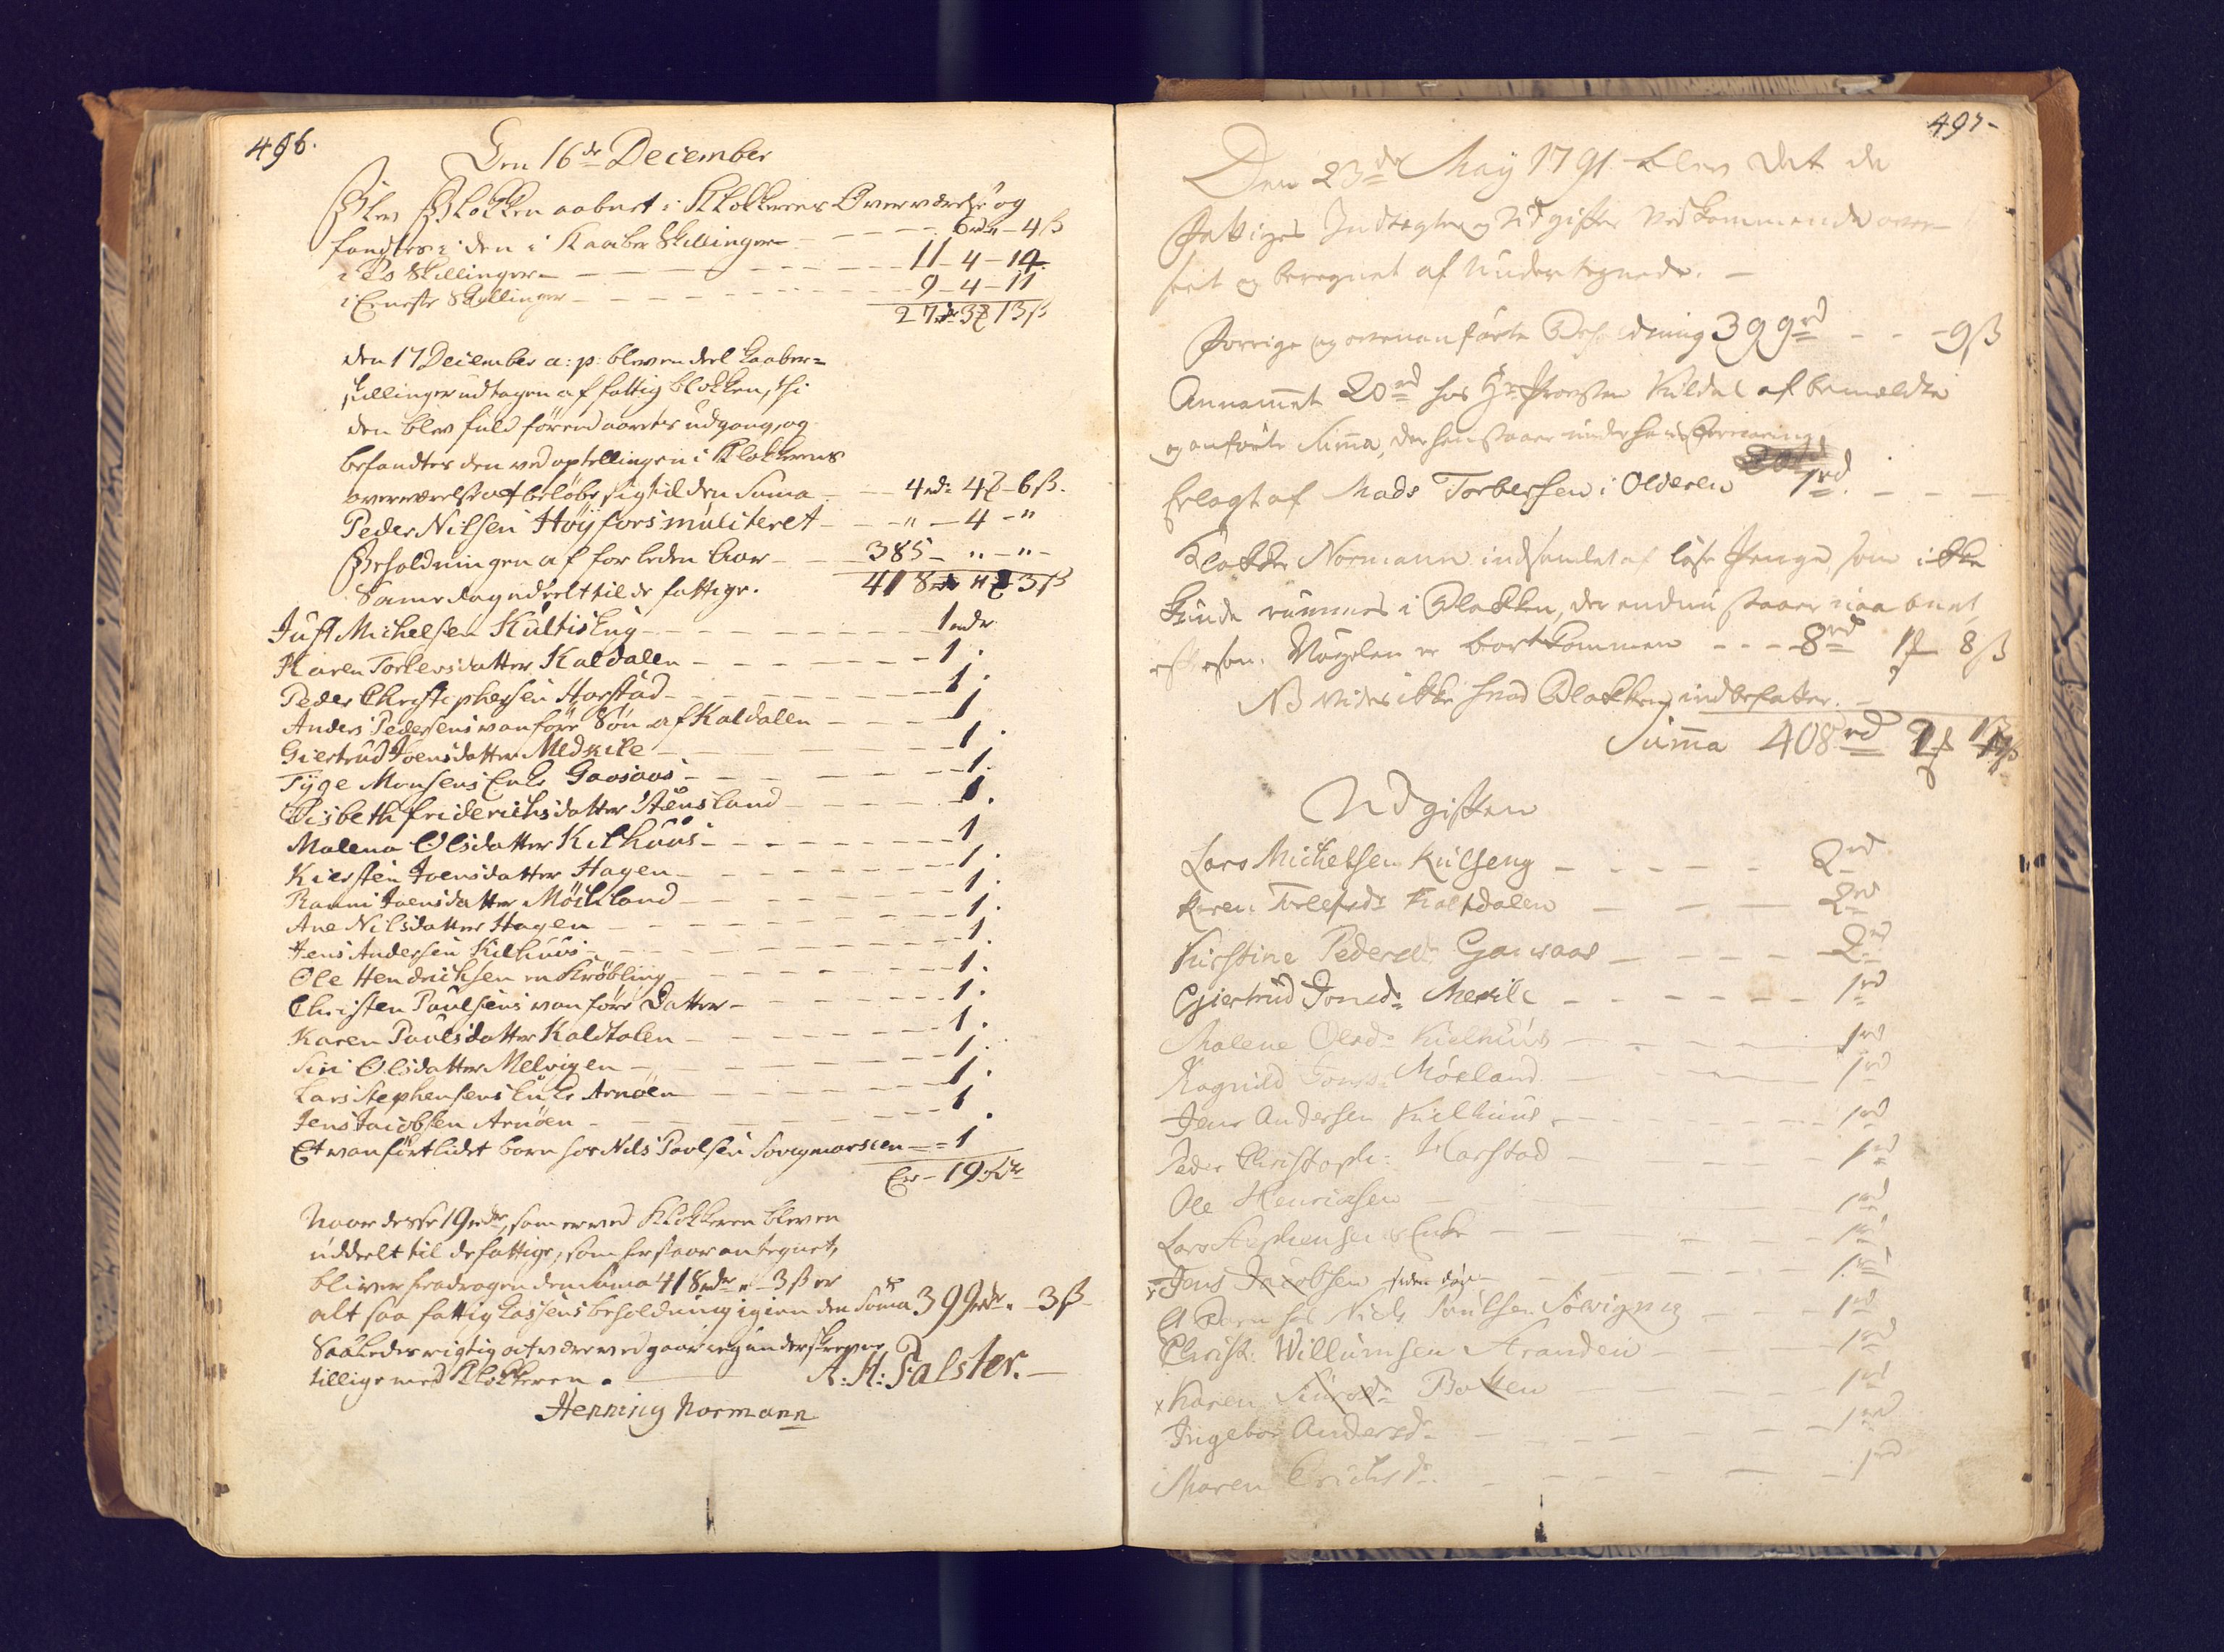 496.
Den 16de December
Blev Blokken aabnet i Klokkerens Overværelse og
fandtes i den i Kaaber Skillinger - - - 6rd " - 4ß
i To Skillinger - - - 11 - 4 - 14
i Eneste Skillinger - - - 9 - 4 - 11
27rdr 3 13ß
den 17 December a: p: bleven deel kaaber=
skillinger udtagen af fattig blokken, thi
den blev fuld förend aarets udgang, og
befandtes den ved optellingen i Klokkerens
overværelse at belöbe sig til den Suma - - 4rd: 4 - 6ß.
Peder Nilsen Höjfors mulcteret - - " - 4 - "
Beholdningen af forleden Aar - - 385 - " - " -
418rdr " 3ß
Same dag udeelt til de fattige.
Just Michelsen Kultis Eng - - - 1rdr
Karen Torlevsdatter Kaldalen - - - 1.
Peder Christophersen Harstad - - - 1.
Anders Pedersens vanföre Sön af Kaldalen - - - 1
Giertrud Joensdatter Medkile - - - 1.
Tyge Monsens Enke Gaosaas - - - 1.
Lisbeth friderichsdatter Stensland - - - 1.
Malena Olsdatter Kilhuus - - - 1
Kiersten Joensdatter Hagen - - - 1.
Ranni Joensdatter Möckland - - - 1.
Ane Nilsdatter Hagen - - - 1.
Jens Andersen Kilhuus - - - 1.
Ole Hendrichsen en Kröbling - - - 1.
Christen Paulsens vanföre Datter - - - 1.
Karen Paulsdatter Kaldtalen - - - 1.
Siri Olsdatter Melvigen - - - 1.
Lars Stephensens Enke Arnöen - - - 1.
Jens Jacobsen Arnöen - - - 1
Et vanfört lidet barn hos Nils Paulsen - - 1
Er - 19rdr
Naar desse 19rdr, som er ved Klokkeren bleven
uddeelt til de fattige, som her staar antegnet,
bliver fradragen den Suma 418rdr " 3ß er
alt saa fattig Cassens beholdning igien den Suma 399rdr. - 3ß
Saaledes rigtig at være vedgaar ieg underskreven
tillige med Klokkeren.
A: H: Falster.
Henning Normann
497-
Den 23de May 1791 blev det de
Fattiges Indtægter og Udgifter vedkommende over-
seet og beregnet af Undertegnede.
Forrige og ovenanförte Beholdning 399rd - - - 9ß
Annammet 20rd hos Hr. Provsten Kildal af bemældte
og anförte Summa, der hen staaer under hans forvaring
Erlagt af Mads Torbersen i Olderen 1rd. - - -
Klokker Normann indsamlet af löse Penge, som ikke
kunde rummes i Blokken, der endnu staaer uaabnet,
eftersom Nögelen er bortkommen - - - 8rd 1 8ß
NB vides ikke hvad Blokken indbefatter.
Summa 408rd
Udgiften
Lars Michelsen Kulseng - - - 2rd
Karen Torlefsdr Kaltdalen - - - 2rd
Kirstine Pedersdr Gausaas - - - 2rd
Giertrud Jonsdr Mekile - - - 1rd
Malene Olsdr Kielhuus - - - 1rd
Ragnild Jonsdr Möcland - - - 1rd
Jens Andersen Kielhuus - - - 1rd
Peder Christoph: Harstad - - - 1rd
Ole Henricksen - - - 1rd
Lars Stephensens Enke - - - 1rd
Jens Jacobsen - - - 1rd
Et Barn hos Niels Paulsen - - - 1rd
Christ: Willumsen Stranden - - - 1rd
x Karen Botten - - - 1rd
Ingebor Andersdr - - - 1rd
Maren Erichsdr. - - - 1rd